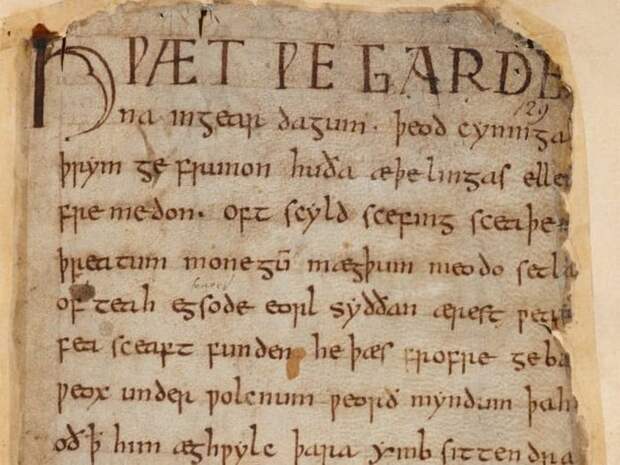 HǷÆT ǷE GARDE
129
na ingear dagum. þeod cyninga
þrym ge frunon huða æþelingas elle
fre medon. oft scyld scefing sceaþe
þreatum monegū mægþum meodo setla
of teah egsode eorl syððan ærest ƿear
fea sceaft funden he þæs frofre geba
ƿeox under ƿolcnum ƿeorð myndum þah
oð ꝥ him æghƿylc þara ymb sittendra